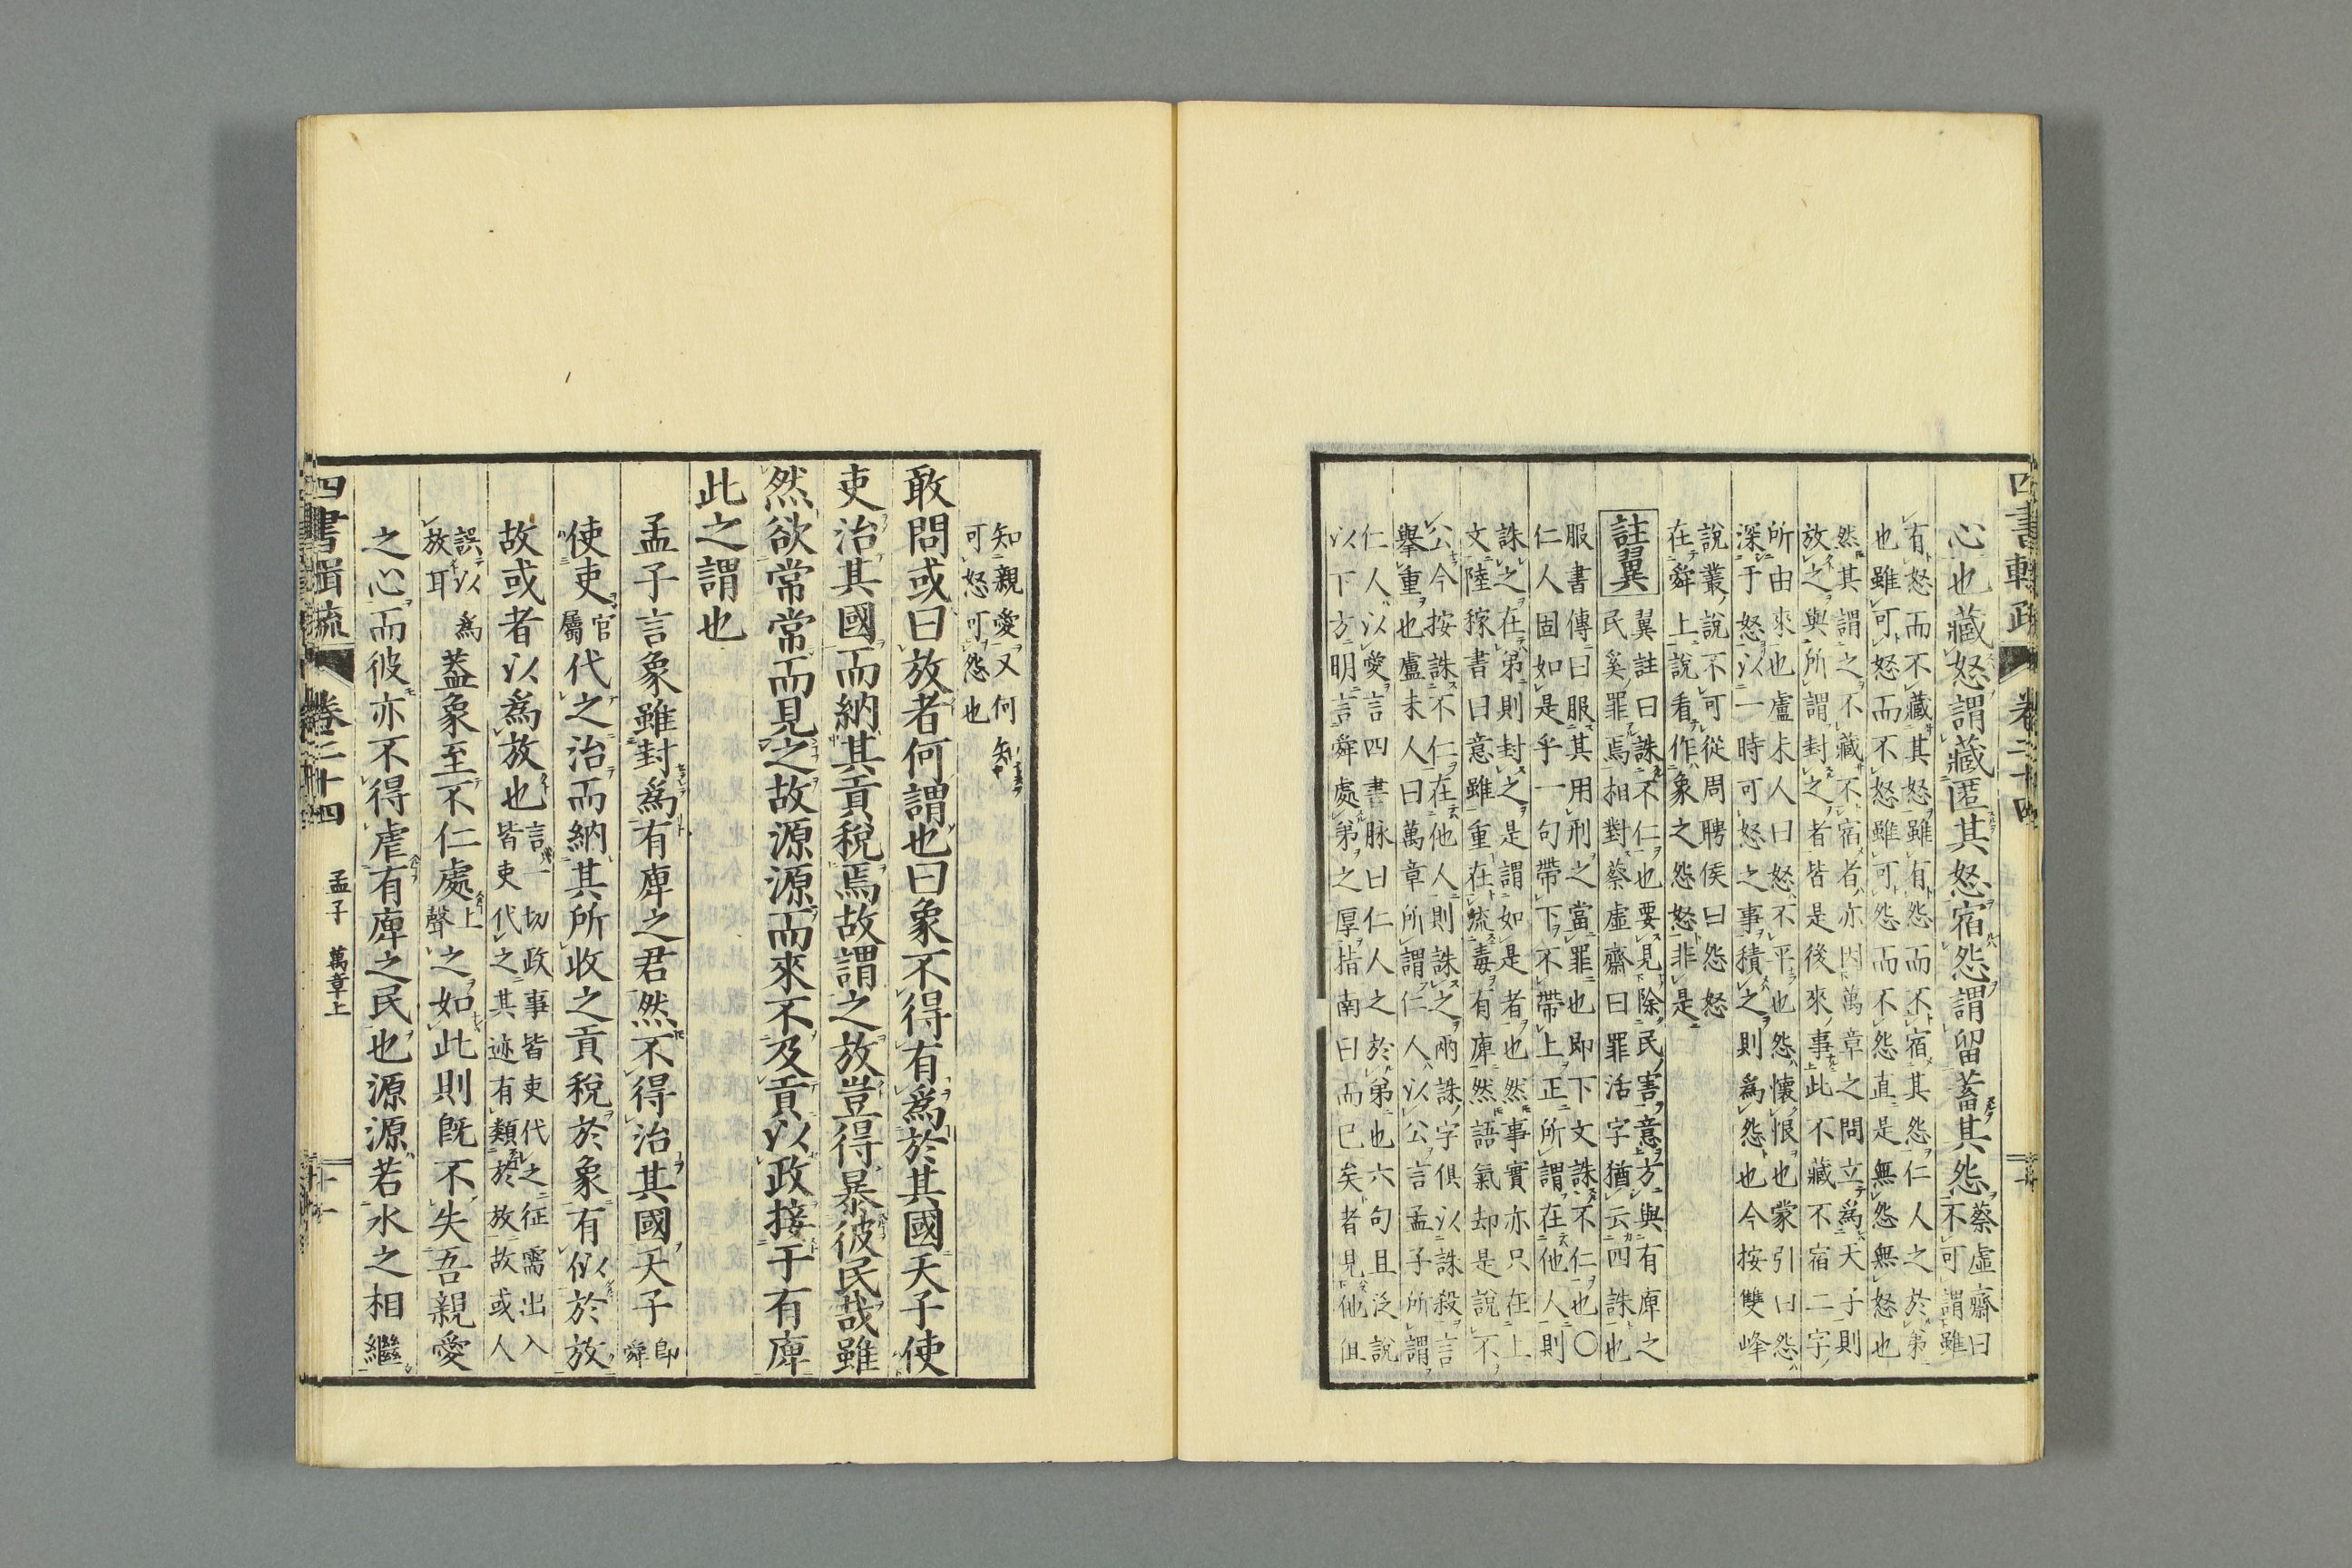 四書輯疏 卷二十四
心也藏怒謂藏匿其怒宿怨謂留蓄其怨
蔡虛齋曰
不可謂雖
有怒而不藏其怒雖有怨而不宿其怨仁人之於弟
也雖可怒而不怒雖可怨而不怨直是無怨無怒也
然其謂之不藏不宿者亦因萬章之問立爲天子則
放之與所謂封之者皆是後來事此不藏不宿二字
所由來也盧未人曰怒不平也怨懷恨也蒙引曰怨
深于怒以一時可怒之事積之則爲怨也今按雙峰
說叢說不可從周聘侯曰怨怒
在舜上說看作象之怨怒非是
註翼
翼註曰誅不仁也要見除民害意方與有庳之
民奚罪焉相對蔡虛齋曰罪活字猶云四誅也
服書傳曰服其用刑之當罪也即下文誅不仁也〇
仁人固如是乎一句帶下不帶上正所謂在他人則
誅之在弟則封之是謂如是者也然事實亦只在上
文陸稼書曰意雖重在流毒有庳然語氣却是說不
公今按誅不仁在他人則誅之兩誅字俱以誅殺言
舉重也盧未人曰萬章所謂仁人以公言孟子所謂
仁人以愛言四書脉曰仁人之於弟也六句且泛說
以下方明言舜處弟之厚指南曰而已矣者見他但
知親愛又何知
可怒可怨也
敢問或曰放者何謂也曰象不得有爲於其國天子使
吏治其國而納其貢稅焉故謂之放豈得暴彼民哉雖
然欲常常而見之故源源而來不及貢以政接于有庳
此之謂也
孟子言象雖封爲有庳之君然不得治其國天子
即
舜
使吏
官
屬
代之治而納其所收之貢稅於象有似於放
故或者以爲放也
言一切政事皆吏代之征需出入
皆吏代之其迹有類於放故或人
誤以爲
放耳
蓋象至不仁處
上
聲
之如此則既不失吾親愛
之心而彼亦不得虐有庳之民也源源若水之相繼
四書輯疏 卷二十四 孟子 萬章上 十一